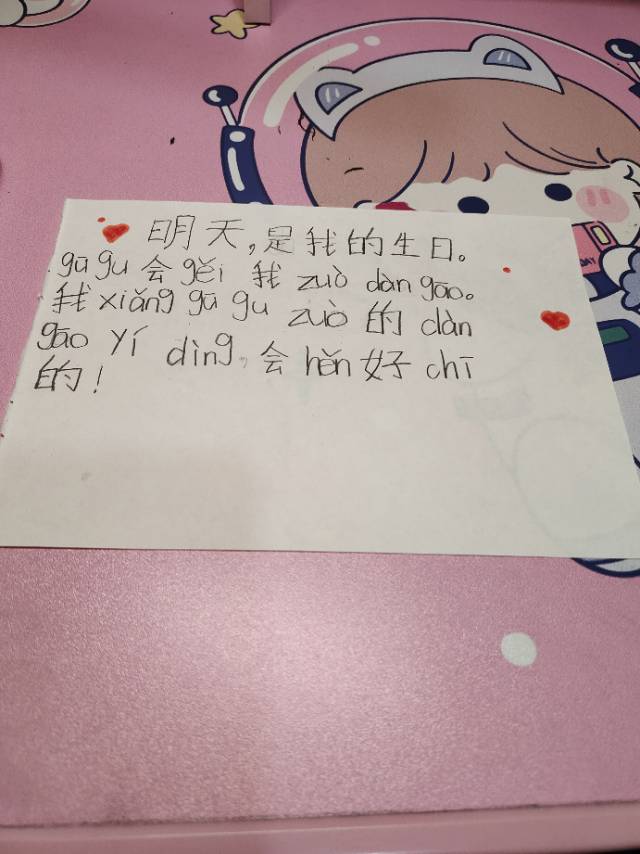 明天,是我的生日。
gū gu 会 gěi 我 zuò dàn gāo。
我 xiǎng gū gu zuò 的 dàn
gāo yí dìng, 会 hěn 好 chī
的!